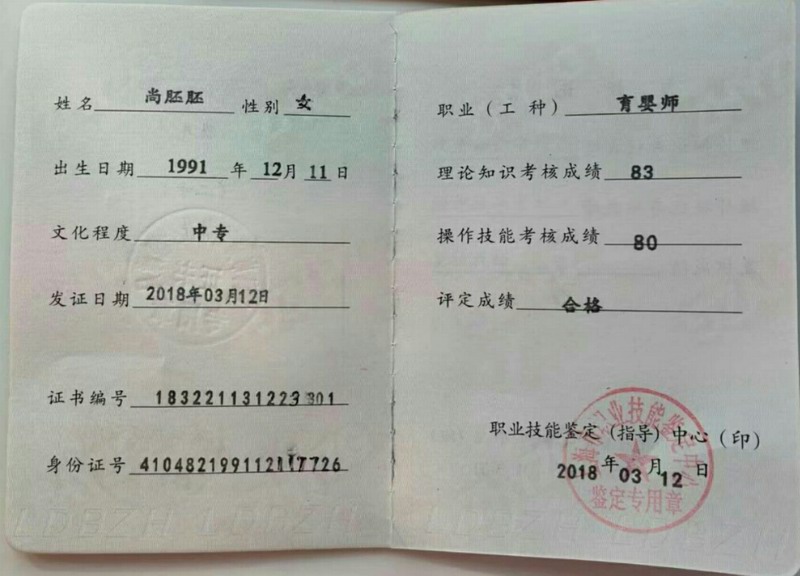 姓名 尚胚胚 性别 女
出生日期 1991 年 12月 11 日
文化程度 中专
发证日期 2018年03月12日
证书编号 183221131223301
身份证号
职业（工 种） 育婴师
理论知识考核成绩 83
操作技能考核成绩 80
评定成绩 合格
职业技能鉴定（指导）中心（印）
2018 年 03 月 12 日
业技能鉴定中心
鉴定专用章
LDBZH LDBZH LDBZH LDBZH